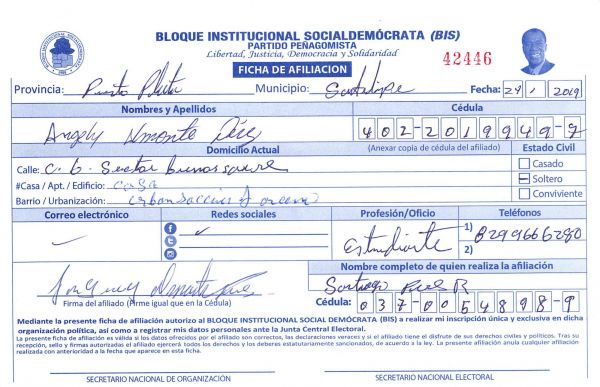 BLOQUE INSTITUCIONAL SOCIALDEMÓCRATA (BIS)
PARTIDO PEÑAGOMISTA
Libertad, Justicia, Democracia y Solidaridad
42446
FICHA DE AFILIACION
Provincia: Puerto Plata Municipio: Fecha: 24 1 2019
Nombres y Apellidos Cédula
Angely Almonte Díaz 402-2019949-9
Domicilio Actual (Anexar copia de cédula del afiliado) Estado Civil
Calle: C. 6. Sector Buenos aire Casado
#Casa / Apt. / Edificio: casa Soltero
Barrio / Urbanización: Conviviente
Correo electrónico Redes sociales Profesión/Oficio Teléfonos
Estudiante 1) 8299666280
2)
Nombre completo de quien realiza la afiliación
Santiago
Firma del afiliado (Firme igual que en la Cédula) Cédula: 037-0054898-9
Mediante la presente ficha de afiliación autorizo al BLOQUE INSTITUCIONAL SOCIAL DEMÓCRATA (BIS) a realizar mi inscripción única y exclusiva en dicha
organización política, así como a registrar mis datos personales ante la Junta Central Electoral.
La presente ficha de afiliación es válida si los datos ofrecidos por el afiliado son correctos, las declaraciones veraces y si el afiliado tiene el disfrute de sus derechos civiles y políticos. Tras su
recepción, sello y firmas autorizadas el afiliado ejercerá todos los derechos y los deberes estatutariamente sancionados, de acuerdo a la ley. La presente afiliación anula cualquier afiliación
realizada con anterioridad a la fecha que aparece en esta ficha.
SECRETARIO NACIONAL DE ORGANIZACIÓN SECRETARIO NACIONAL ELECTORAL